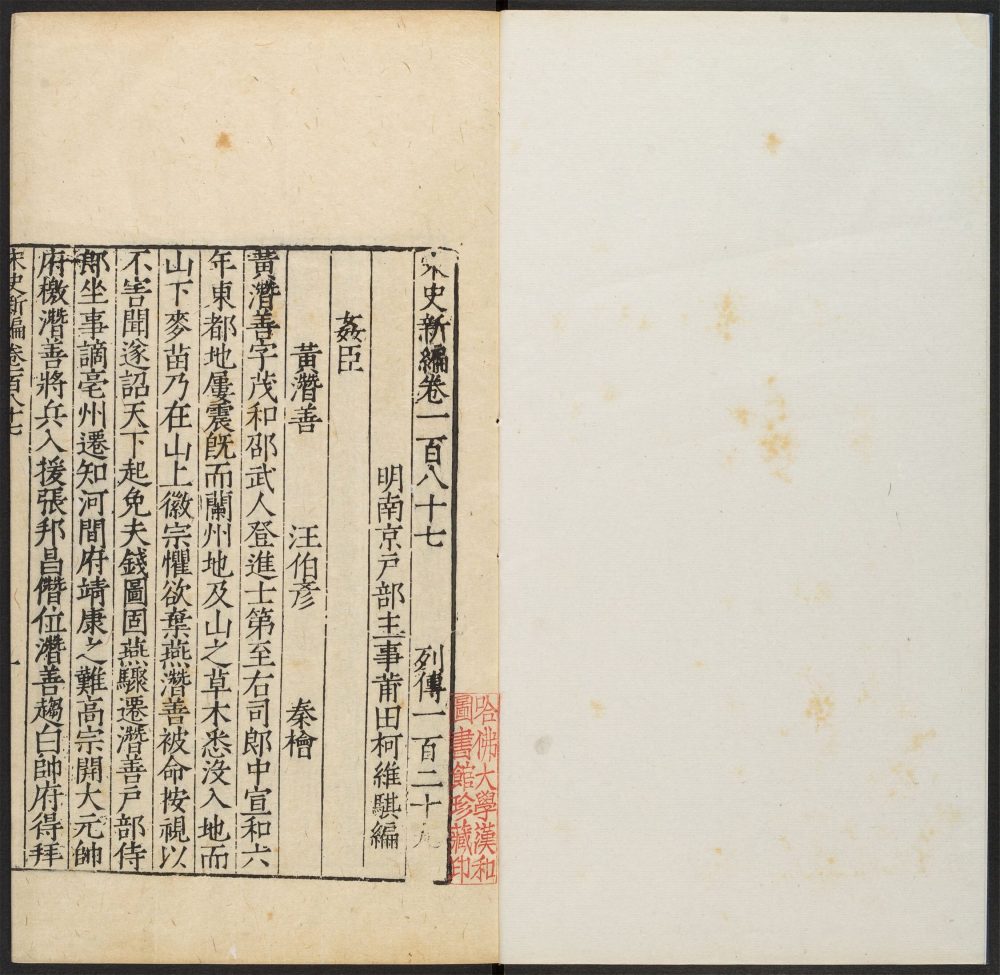 宋史新編卷一百八十七　列傳一百二十九
明南京戸部主事莆田柯維騏編
姦臣
黃潛善　汪伯彥　秦檜
黃潛善字茂和邵武人登進士第至右司郎中宣和六
年東都地屢震既而蘭州地及山之草木悉没入地而
山下麥苗乃在山上徽宗懼欲棄燕潛善被命按視以
不害聞遂詔天下起免夫錢圖固燕驟遷潛善戸部侍
郎坐事謫亳州遷知河間府靖康之難高宗開大元帥
府檄潛善將兵入援張邦昌僭位潛善趨白帥府得拜
宋史新編卷一百八十七　一
哈佛大學漢和
圖書館珍藏印